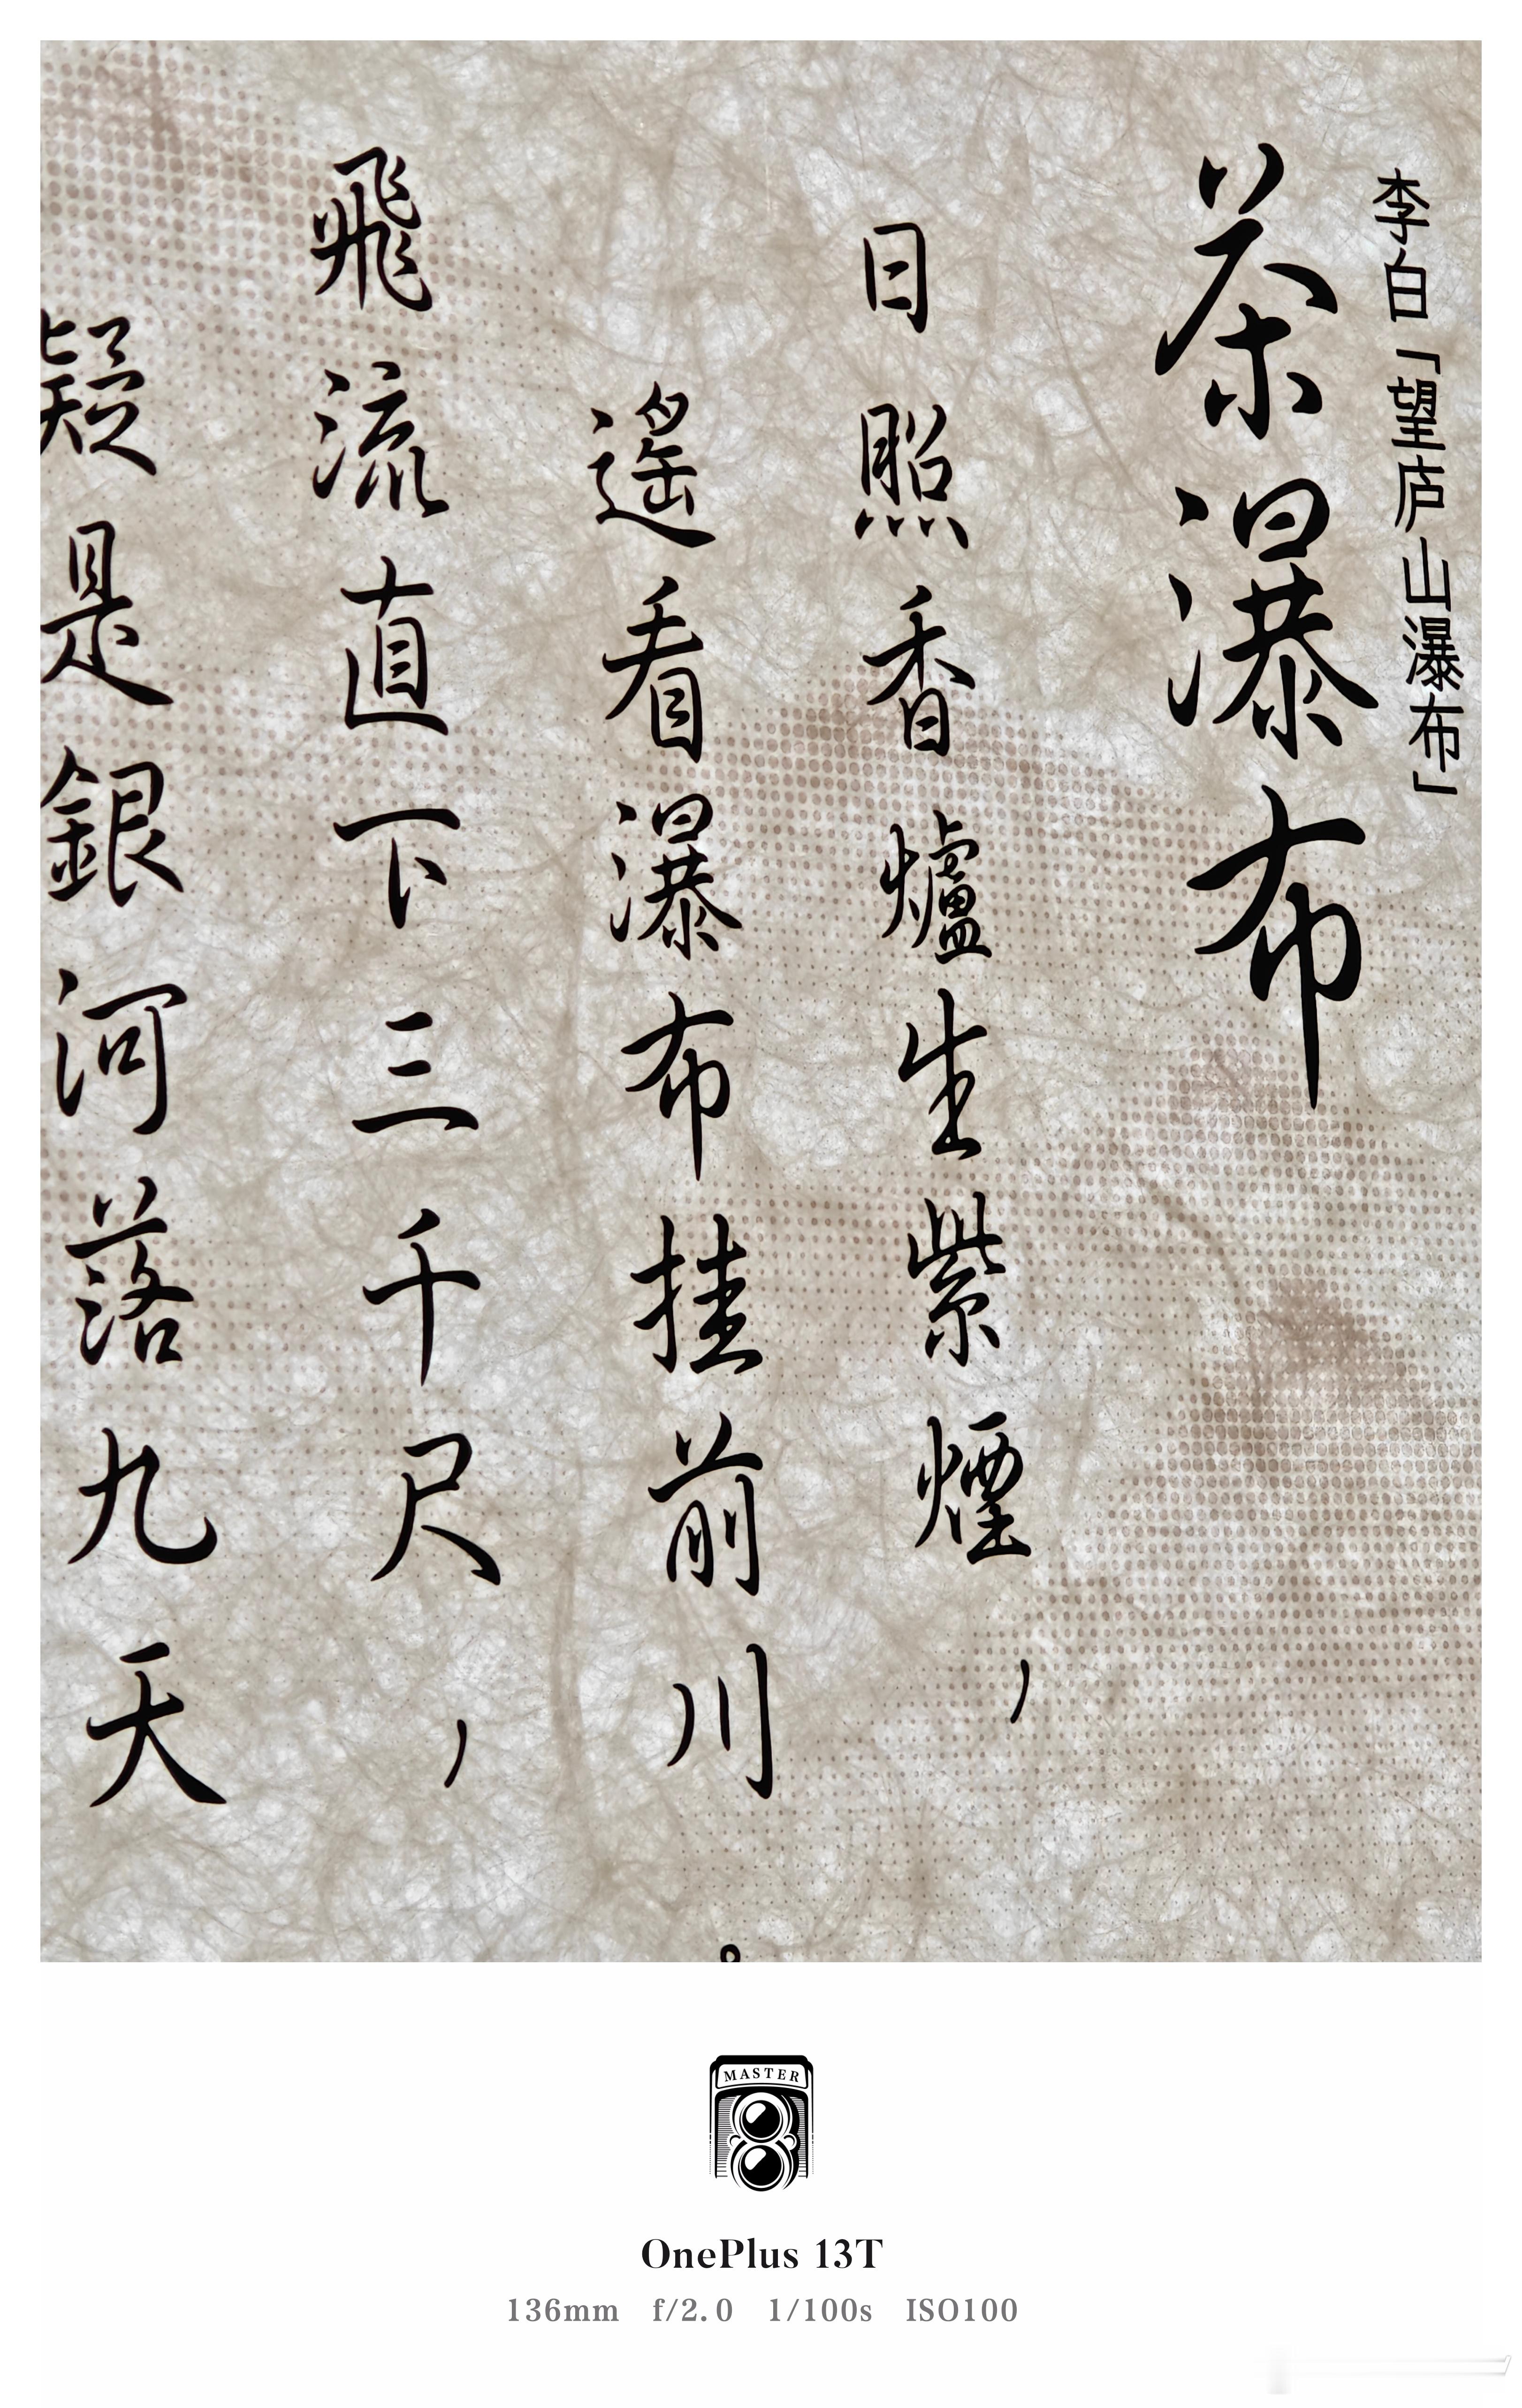 李白「望庐山瀑布」
茶瀑布
日照香爐生紫煙，
遙看瀑布挂前川。
飛流直下三千尺，
疑是銀河落九天
MASTER
OnePlus 13T
136mm f/2.0 1/100s ISO100